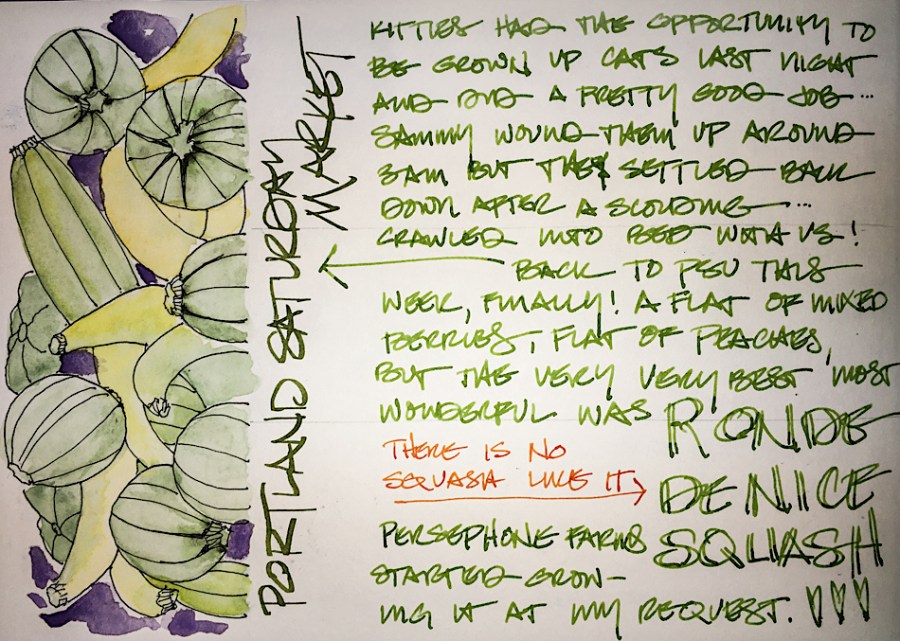 PORTLAND SATURDAY
MARKET
KITTIES HAD THE OPPORTUNITY TO
BE GROWN UP CATS LAST NIGHT
AND DID A PRETTY GOOD JOB...
SAMMY WOUND THEM UP AROUND
3AM BUT THEY SETTLED BACK
DOWN AFTER A SCOLDING...
CRAWLED INTO BED WITH US!
BACK TO PSU THIS
WEEK, FINALLY! A FLAT OF MIXED
BERRIES, FLAT OF PEACHES,
BUT THE VERY VERY BEST, MOST
WONDERFUL WAS RONDE
DE NICE
SQUASH
THERE IS NO
SQUASH LIKE IT,
PERSEPHONE FARMS
STARTED GROW-
ING IT AT MY REQUEST.